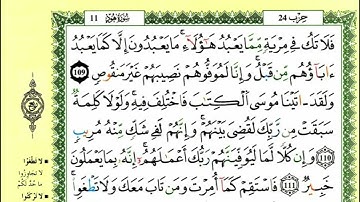 11 سورة هود حزب 24
فَلَا تَكُ فِي مِرْيَةٍ مِّمَّا يَعْبُدُ هَٰؤُلَاءِ مَا يَعْبُدُونَ إِلَّا كَمَا يَعْبُدُ
ءَابَاؤُهُم مِّن قَبْلُ وَإِنَّا لَمُوَفُّوهُمْ نَصِيبَهُمْ غَيْرَ مَنقُوصٍ 109
وَلَقَدَ اتَيْنَا مُوسَى اَلْكِتَٰبَ فَاخْتُلِفَ فِيهِ وَلَوْلَا كَلِمَةٌ
سَبَقَتْ مِن رَّبِّكَ لَقُضِيَ بَيْنَهُمْ وَإِنَّهُمْ لَفِي شَكٍّ مِّنْهُ مُرِيبٍ
110 وَإِن كُلّاً لَمَا لَيُوَفِّيَنَّهُمْ رَبُّكَ أَعْمَٰلَهُمْ إِنَّهُ بِمَا يَعْمَلُونَ
خَبِيرٌ 111 فَاسْتَقِمْ كَمَا أُمِرْتَ وَمَن تَابَ مَعَكَ وَلَا تَطْغَوِا
لا تطغوا
لا تجاوزوا
ما حد لكم
لا تركنوا